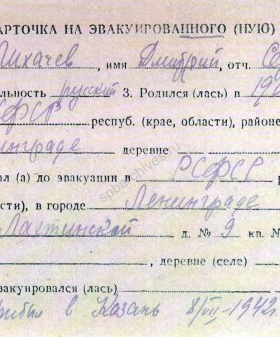 КАРТОЧКА НА ЭВАКУИРОВАННОГО (НУЮ)
Лихачев, имя Дмитрий, отч. Се
альность русский 3. Родился (лась) в 19
СФСР респуб. (крае, области), районе
нинграде деревне
ал (а) до эвакуации в РСФСР р
сти), в городе Ленинграде
Лахтинской д. № 9 кв. №
, деревне (селе)
вакуировался (лась)
прибыл в Казань 8/VII-1942